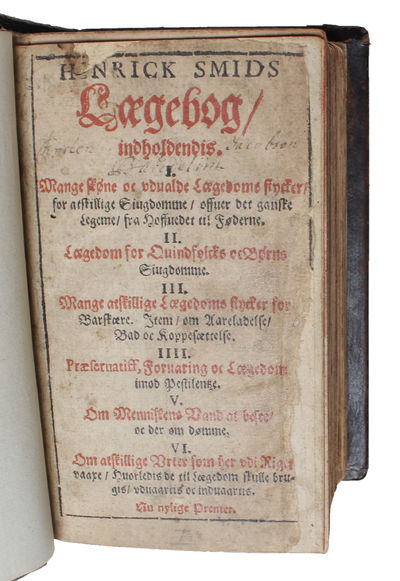 HENRICK SMIDS
Lægebog/
indholdendis.
Jacobsen
I.
Mange skøne oc vdualde Lægedoms stycker/
for atskillige Siugdomme/ offuer det gantske
Legeme/ fra Hoffuedet til Føderne.
II.
Lægedom for Quindfolcks oc Børns
Siugdomme.
III.
Mange atskillige Lægedoms stycker for
Barskære. Item/ om Aareladelse/
Bad oc Koppesættelse.
IIII.
Præseruatiff, Foruaring oc Lægedom
imod Pestilentze.
V.
Om Menniskens Vand at besee/
oc der om dømme.
VI.
Om atskillige Vrter som her vdi Riget
vaaxe/ Huorledis de til Lægedom skulle bru-
gis/ vduaartis oc induaartis.
Nu nylige Prentet.